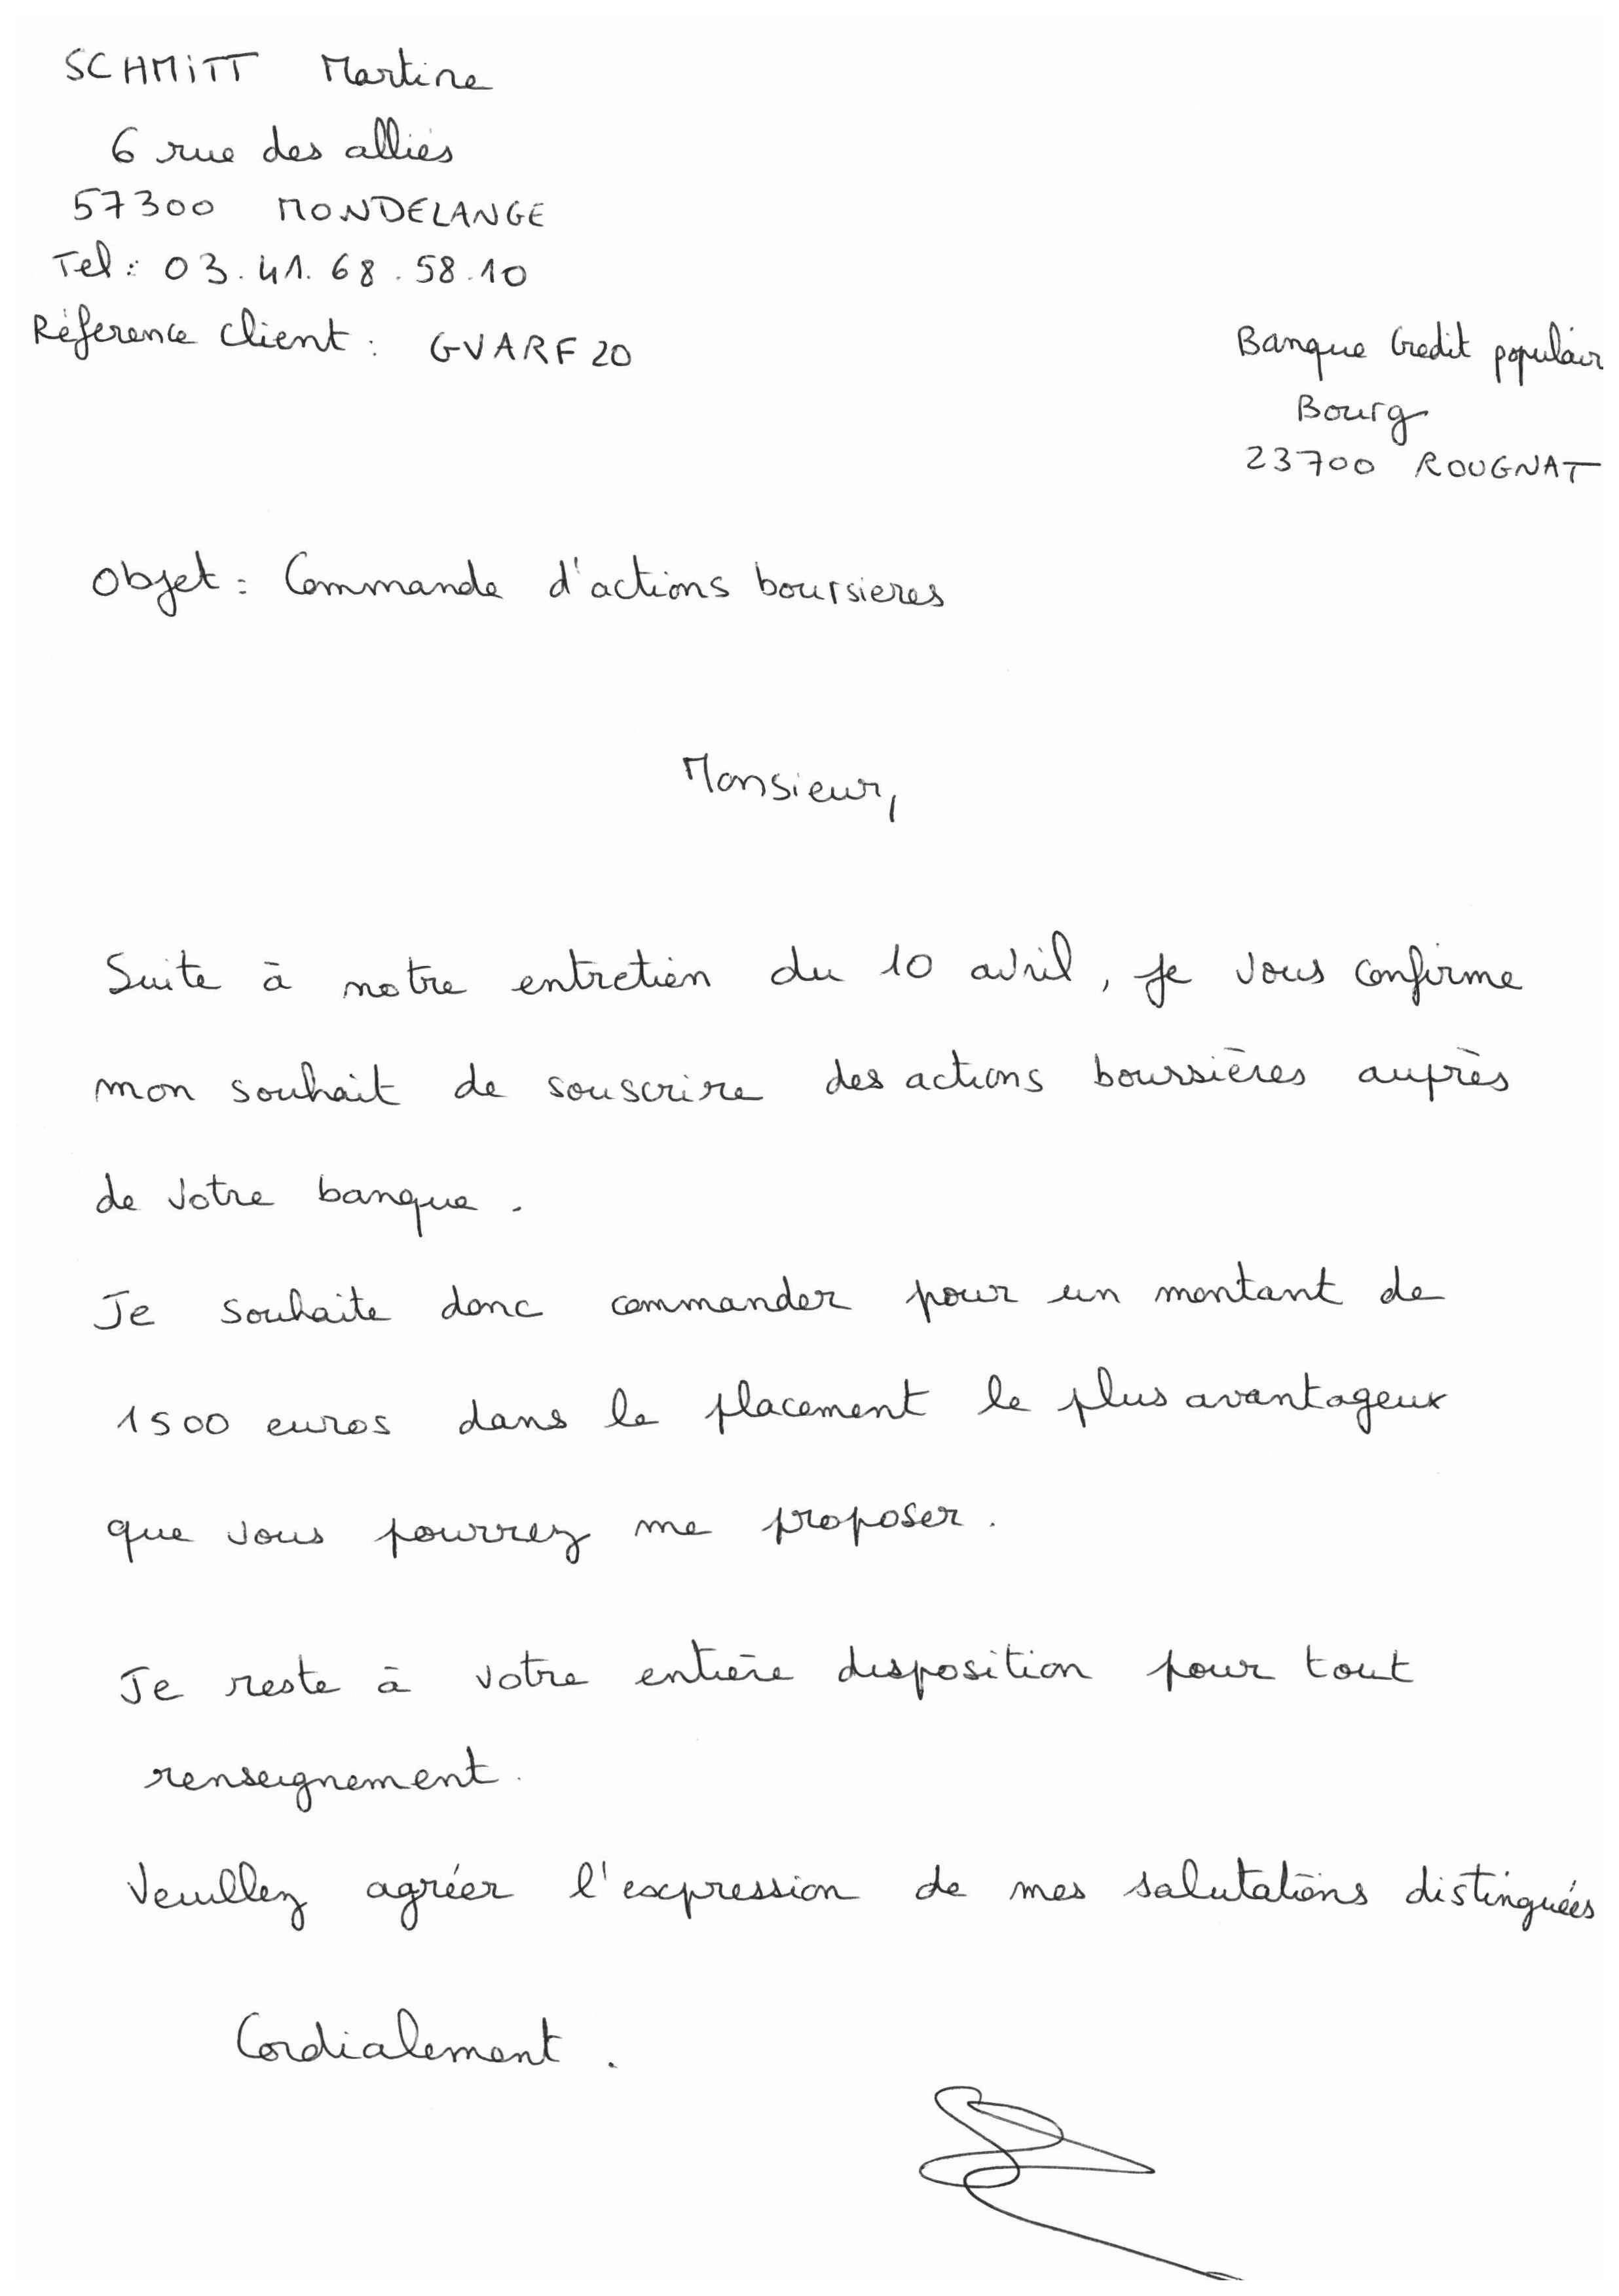 SCHMITT Martine
6 rue des alliés
57300 MONDELANGE
Tel : 03.41.68.58.10
Réference client : GVARF20
Banque Credit populair
Bourg
23700 ROUGNAT
Objet : Commande d'actions boursieres
Monsieur,
Suite à notre entretien du 10 avril, je vous confirme
mon souhait de souscrire des actions boursières auprès
de votre banque.
Je souhaite donc commander pour un montant de
1500 euros dans le placement le plus avantageux
que vous pourrez me proposer.
Je reste à votre entière disposition pour tout
renseignement.
Veuillez agréer l'expression de mes salutations distinguées
Cordialement.